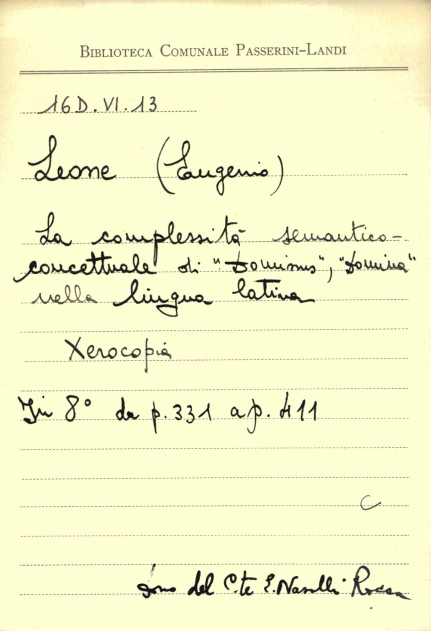 BIBLIOTECA COMUNALE PASSERINI-LANDI
16D.VI.13
Leone (Eugenio)
La complessità semantico-
concettuale di "Dominus", "Domina"
nella lingua latina
Xerocopia
In 8° da p. 331 a p. 411
C
dono del C.te E. Nasalli Rocca